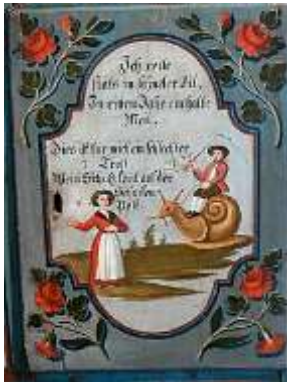 Ich reite
stets in schneller Eil,
In einem Jahr ein halbe
Meil.
Dies ist für mich ein schlechter
Trost
Mein Schatz auf der
Schnecken
Post.